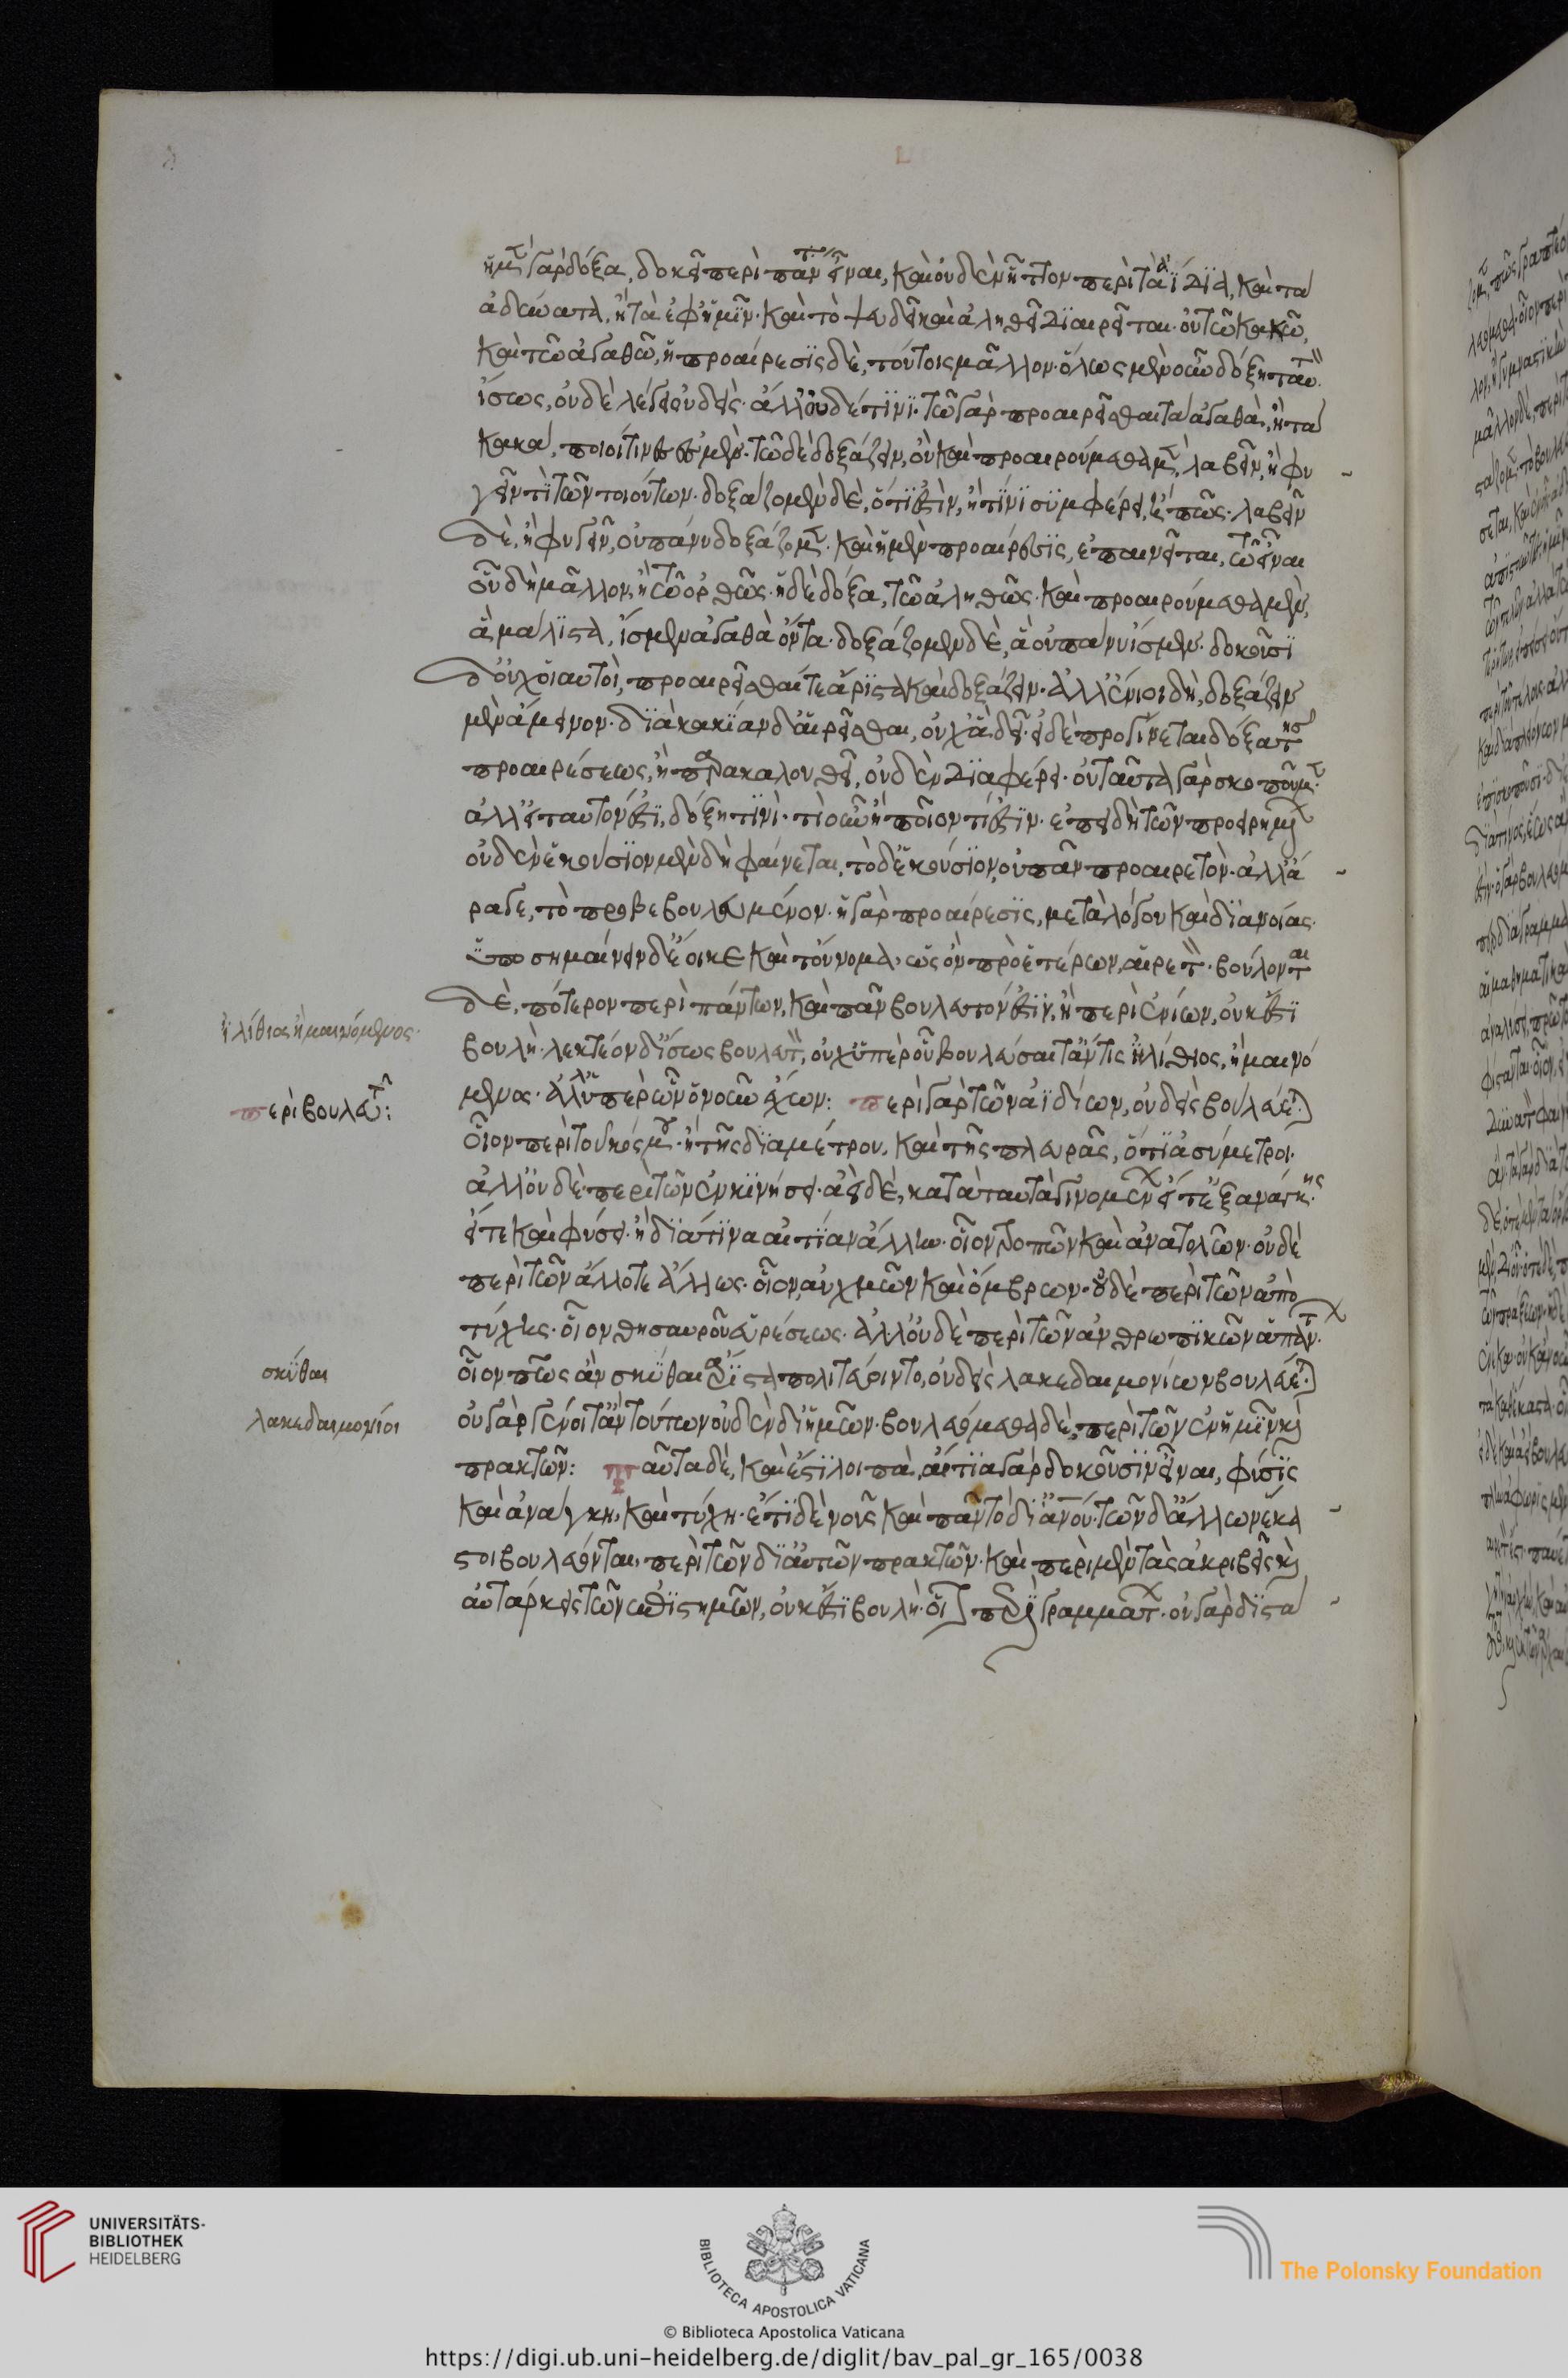 ἡ μὲν γὰρ δόξα, δοκεῖ περὶ πάντα εἶναι, καὶ οὐδὲν ἧττον περὶ τὰ ἀΐδϊα, καὶ τὰ
ἀδύνατα, ἢ τὰ ἐφ' ἡμῖν· καὶ τὸ ψευδεῖ καὶ ἀληθεῖ διαιρεῖται· οὐ τῶ κακῶ,
καὶ τῶ ἀγαθῶ, ἡ προαίρεσϊς δὲ, τούτοις μᾶλλον· ὅλως μὲν οὖν δόξη ταυτὸν
ἴσως, οὐδὲ λέγει οὐδείς· ἀλλ' οὐδέ τϊνι· τῶ γὰρ προαιρεῖσθαι τὰ ἀγαθὰ, ἢ τὰ
κακὰ, ποιοί τινές ἐσμεν· τῶ δὲ δοξάζειν, οὐ· καὶ προαιρούμεθα μὲν, λαβεῖν, ἢ φυ
γεῖν τὶ τῶν τοιούτων· δοξάζομεν δὲ, ὅτι ἐστὶν, ἢ τίνι συμφέρει, ἢ πῶς· λαβεῖν
δὲ, ἢ φυγεῖν, οὐ πάνυ δοξάζομεν· καὶ ἡ μὲν προαίρεσϊς, ἐπαινεῖται, τῶ εἶναι
οὗ δὴ μᾶλλον, ἢ τῶ ὀρθῶς· ἡ δὲ δόξα, τῶ ἀληθῶς· καὶ προαιρούμεθα μὲν,
ἃ μάλϊστα, ἴσμεν ἀγαθὰ ὄντα· δοξάζομεν δὲ, ἃ οὐ πάνυ ἴσμεν· δοκοῦσϊ
δ' οὐχ οἱ αὐτοὶ, προαιρεῖσθαί τε ἄρϊστα καὶ δοξάζειν· ἀλλ' ἔνιοι δὴ, δοξάζειν
μὲν ἄμεινον· διὰ κακίαν δ' αἱρεῖσθαι, οὐχ ἃ δεῖ· εἰ δὲ προγίνεται δόξα τῆς
προαιρέσεως, ἢ παρακολουθεῖ, οὐδὲν διαφέρει· οὐ ταῦτα γὰρ σκοποῦμεν·
ἀλλ' εἰ ταυτόν ἐστϊ, δόξη τϊνί· τί οὖν ἢ ποῖον τί ἐστϊν· ἐπειδὴ τῶν προειρημένων
οὐδὲν ἑκούσϊον μὲν δὴ φαίνεται, τὸ δ' ἑκούσϊον, οὐ πᾶν προαιρετὸν· ἀλλ' ἄ
ραγε, τὸ προβεβουλευμένον· ἡ γὰρ προαίρεσϊς, μετὰ λόγου καὶ διανοίας·
ὑποσημαίνειν δ' ἔοικε καὶ τοὔνομα, ὡς ὂν πρὸ ἑτέρων, αἱρετόν· βουλεύονται
δὲ, πότερον περὶ πάντων, καὶ πᾶν βουλευτόν ἐστϊν, ἢ περὶ ἐνίων, οὐκ ἔστϊ
βουλὴ· λεκτέον δ' ἴσως βουλευτὸν, οὐχ ὑπὲρ οὗ βουλεύσαιτ' ἄν τις ἠλίθιος, ἢ μαινό
μενος· ἀλλ' ὑπὲρ ὧν ὁ νοῦν ἔχων: περὶ γὰρ τῶν ἀϊδίων, οὐδεὶς βουλεύεται·
οἷον περὶ τοῦ κόσμου· ἢ τῆς διαμέτρου, καὶ τῆς πλευρᾶς, ὅτι ἀσύμετροι·
ἀλλ' οὐδὲ περὶ τῶν ἐν κινήσει· ἀεὶ δὲ, κατὰ ταυτὰ γινομένων εἴτε ἐξ ἀνάγκης·
εἴτε καὶ φύσει· ἢ διά τινα αἰτίαν ἄλλην· οἷον τροπῶν καὶ ἀνατολῶν· οὐδὲ
περὶ τῶν ἄλλοτε ἄλλως· οἷον, αὐχμῶν καὶ ὄμβρων· οὐδὲ περὶ τῶν ἀπὸ
τύχης· οἷον θησαυροῦ εὑρέσεως· ἀλλ' οὐδὲ περὶ τῶν ἀνθρωπϊκῶν ἁπάντων·
οἷον πῶς ἂν σκύθαι ἄριστα πολιτεύοιντο, οὐδεὶς λακεδαιμονίων βουλεύεται·
οὐ γὰρ γένοιτ' ἂν τούτων οὐδὲν δι' ἡμῶν· βουλευόμεθα δὲ, περὶ τῶν ἐν ἡμῖν καὶ
πρακτῶν: ταῦτα δὲ, καὶ ἔστϊ λοιπὰ, αἴτϊα γὰρ δοκοῦσϊν εἶναι, φύσϊς
καὶ ἀνάγκη, καὶ τύχη· ἔτϊ δὲ νοῦς καὶ πᾶν τὸ δι' ἀνου· τῶν δ' ἄλλων ἕκα
στοι βουλεύονται, περὶ τῶν δι' αὑτῶν πρακτῶν· καὶ περὶ μὲν τὰς ἀκριβεῖς καὶ
αὐτάρκεις τῶν ἐπϊστημῶν, οὐκ ἔστϊ βουλὴ· οἷον περὶ γραμμάτων· οὐ γὰρ διστά
ἠλίθιος ἢ μαινόμενος·
περὶ βουλευτῶν:
σκύθαι
λακεδαιμονίοι
UNIVERSITÄTS-
BIBLIOTHEK
HEIDELBERG
BIBLIOTECA APOSTOLICA VATICANA
The Polonsky Foundation
© Biblioteca Apostolica Vaticana
https://digi.ub.uni-heidelberg.de/diglit/bav_pal_gr_165/0038